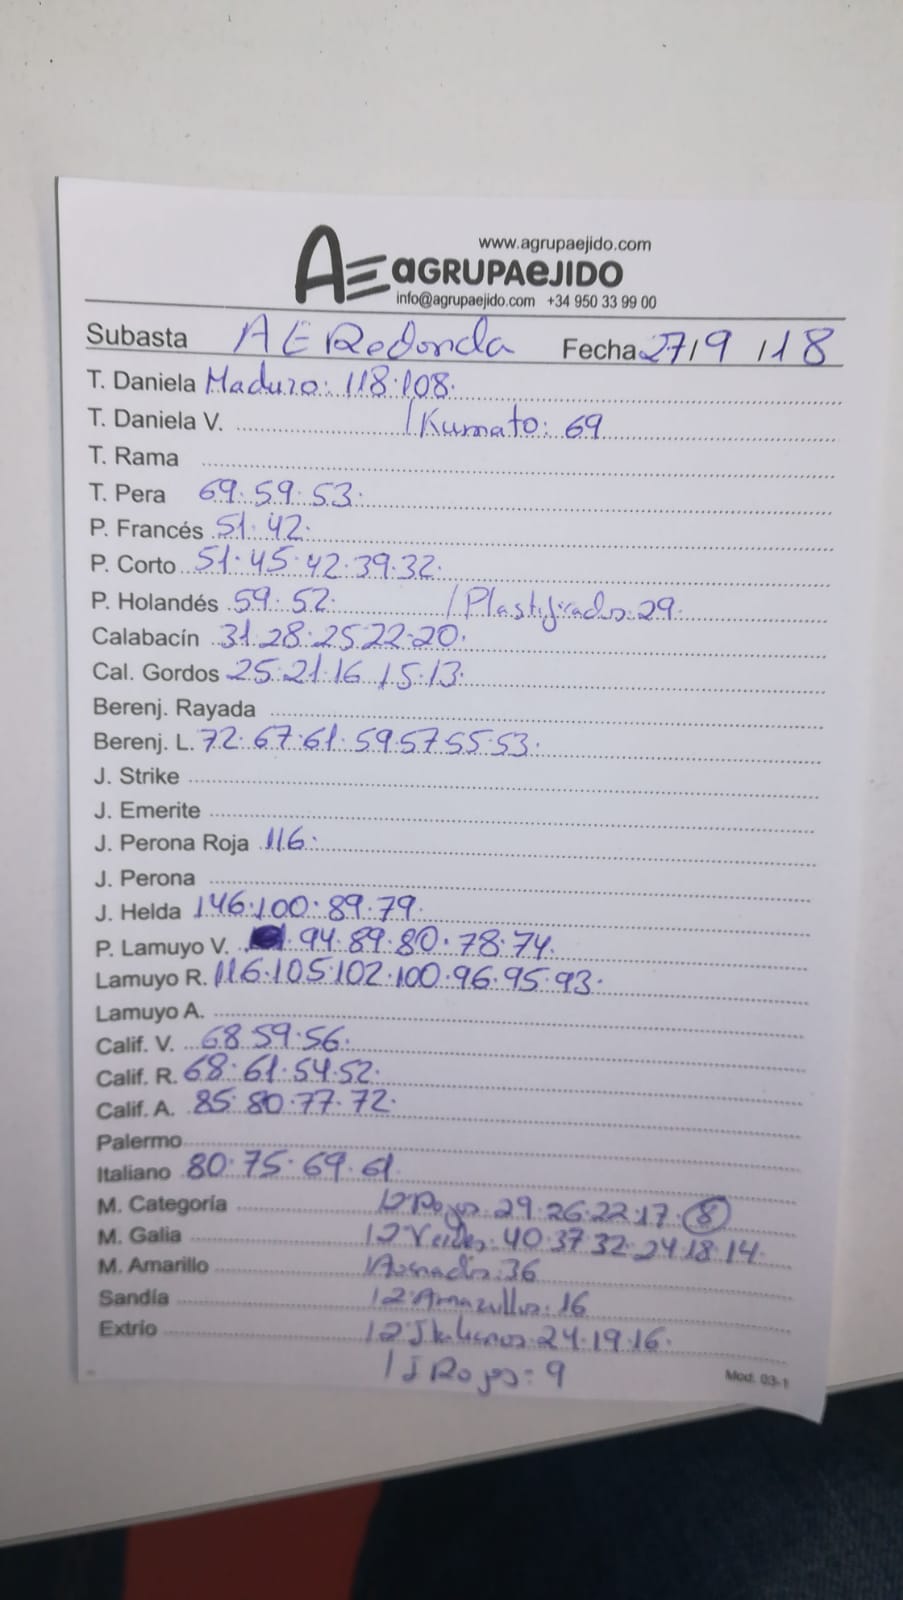 www.agrupaejido.com
AE aGRUPAeJIDO
info@agrupaejido.com +34 950 33 99 00
Subasta AE Redonda Fecha 27/9/18
T. Daniela Maduro: 118·108·
T. Daniela V. /Kumato: 69
T. Rama
T. Pera 69·59·53·
P. Francés 51·42·
P. Corto 51·45·42·39·32·
P. Holandés 59·52· /Plastificados: 29·
Calabacín 31·28·25·22·20·
Cal. Gordos 25·21·16·15·13·
Berenj. Rayada
Berenj. L. 72·67·61·59·57·55·53·
J. Strike
J. Emerite
J. Perona Roja 116·
J. Perona
J. Helda 146·100·89·79·
P. Lamuyo V. 94·89·80·78·74·
Lamuyo R. 116·105·102·100·96·95·93·
Lamuyo A.
Calif. V. 68·59·56·
Calif. R. 68·61·54·52·
Calif. A. 85·80·77·72·
Palermo
Italiano 80·75·69·61
M. Categoría Rojos: 29·26·22·17·8
M. Galia Verdes: 40·37·32·24·18·14·
M. Amarillo Asurcados: 36
Sandía Amarillos: 16
Extrío Italianos: 24·19·16·
Rojos: 9
Mod. 03-1